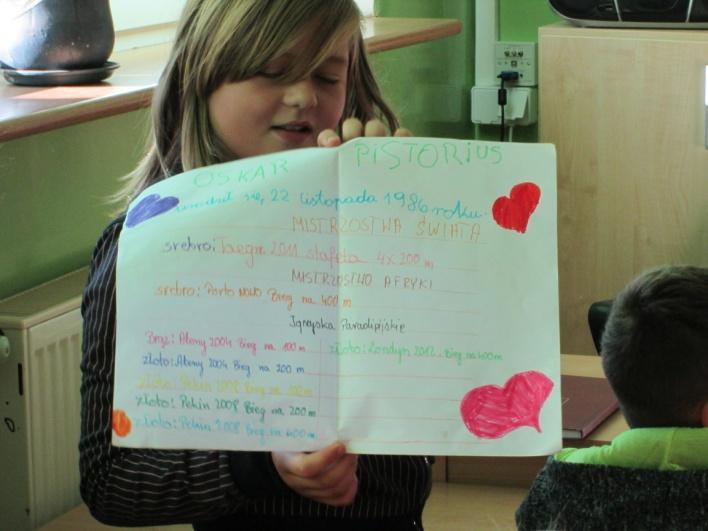 OSKAR PISTORIUS
urodził się, 22 listopada 1986 roku.
MISTRZOSTWA ŚWIATA
srebro: Taegu 2011 stafeta 4x 200 m
MISTRZOSTWO AFRYKI
srebro: Porto NOVO Bieg na 400 m
Igrzyska Paraolipijskie
Brąz: Ateny 2004 Bieg na 100 m
złoto: Londyn 2012. Bieg na 400 m
złoto: Ateny 2004 Bieg na 200 m
złoto: Pekin 2008 Bieg na 100 m
złoto: Pekin 2008 Bieg na 200 m
złoto: Pekin 2008 Bieg na 400 m